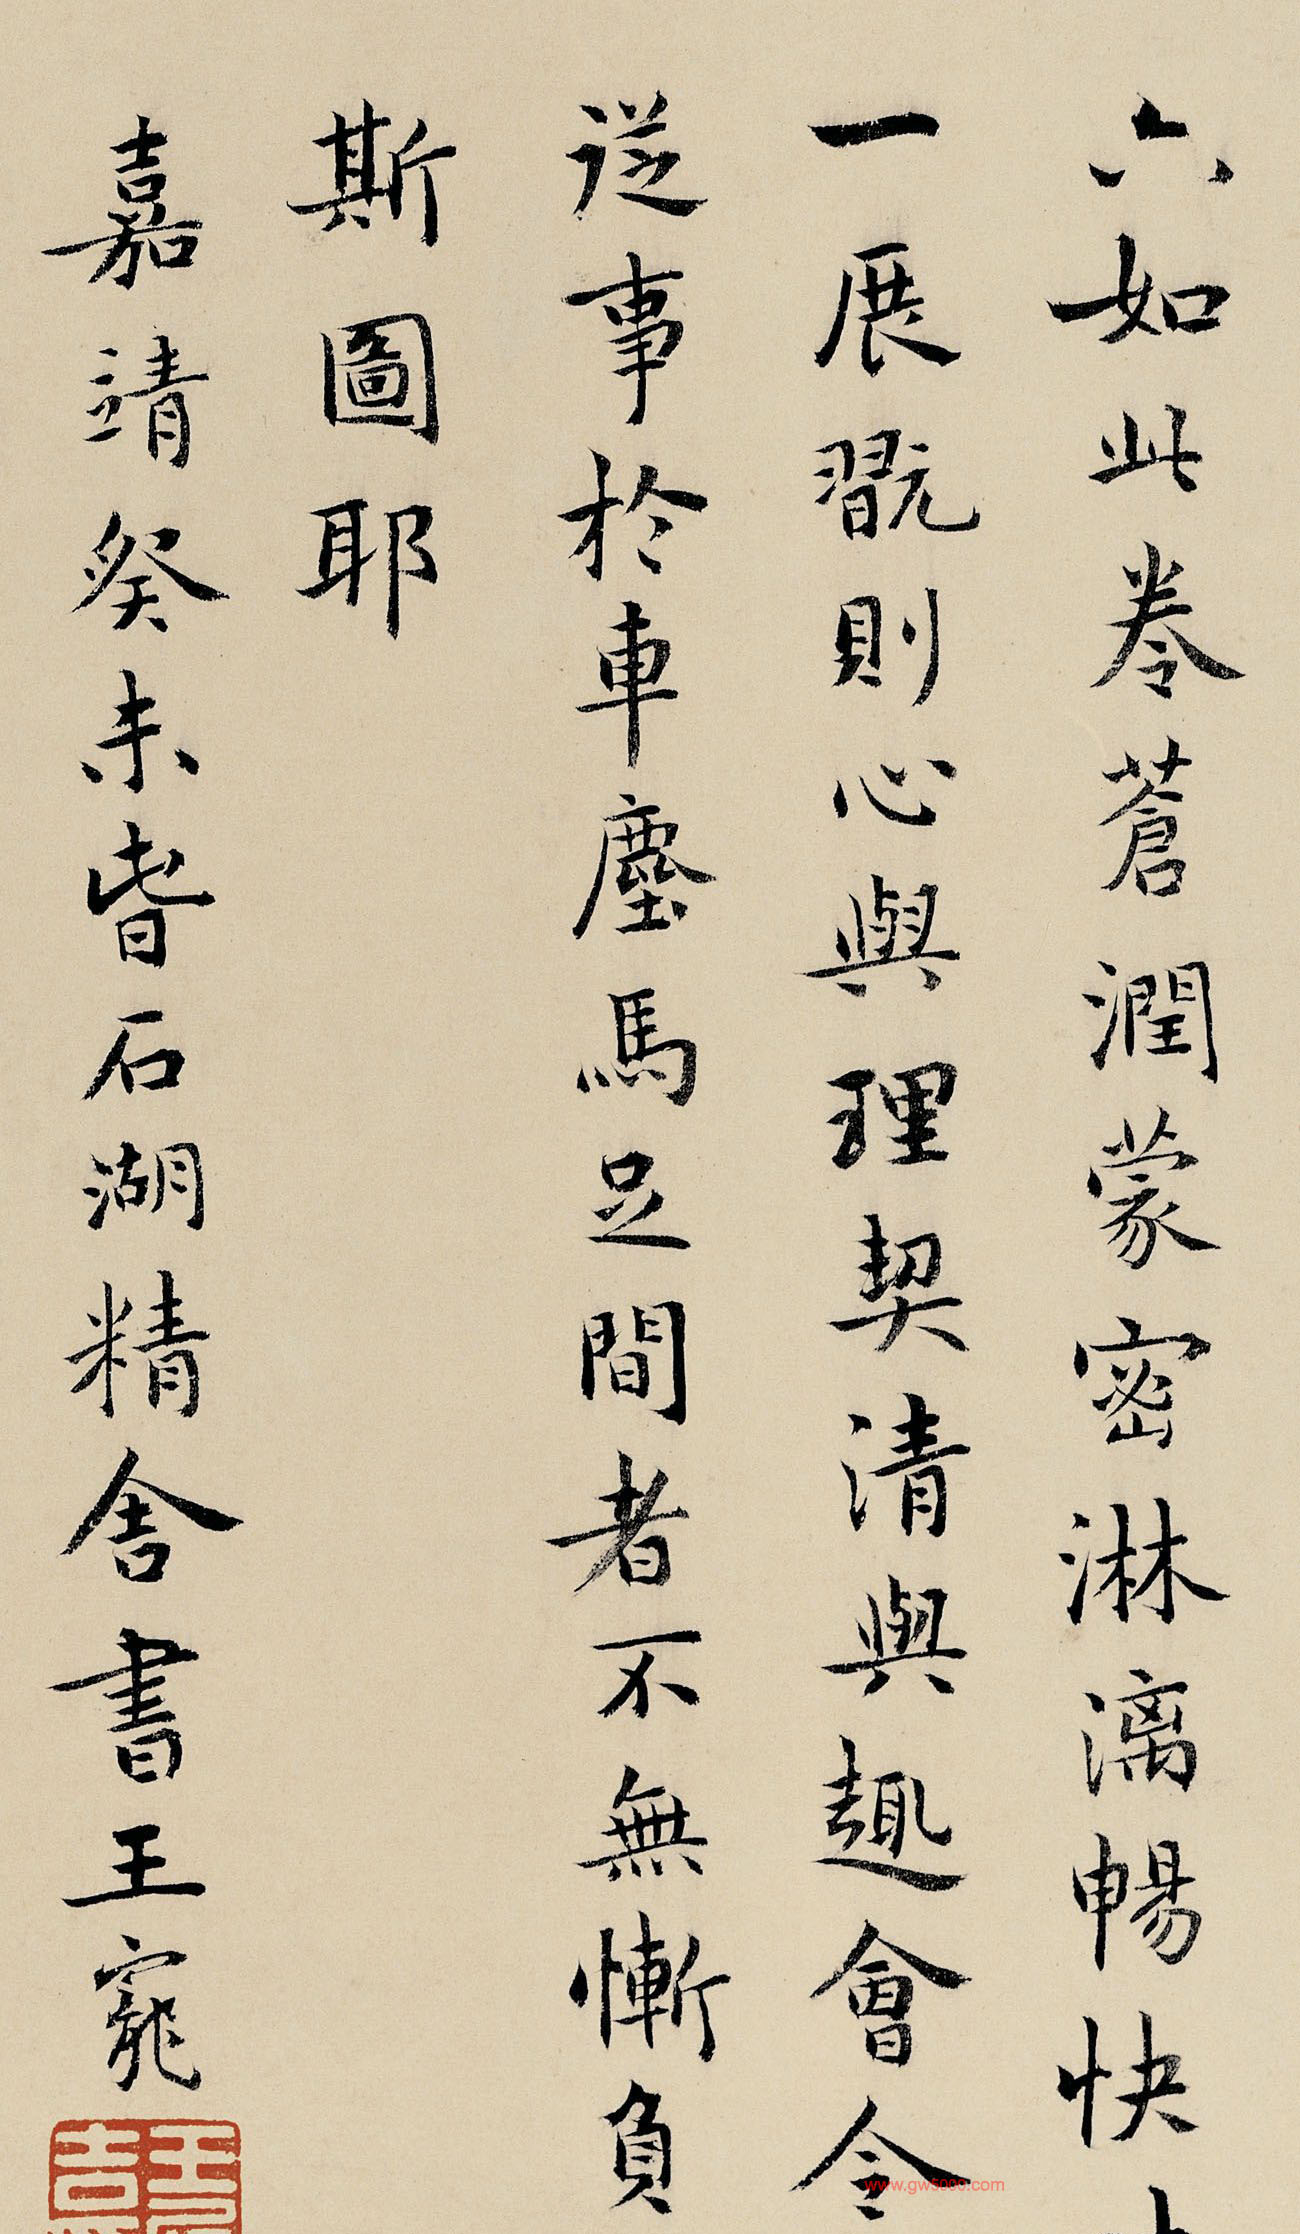 六如此卷蒼潤蒙密淋漓暢快
一展翫則心與理契清與趣會令
從事於車塵馬足間者不無慚負
斯圖耶
嘉靖癸未旹石湖精舍書王寵
www.gw5000.com